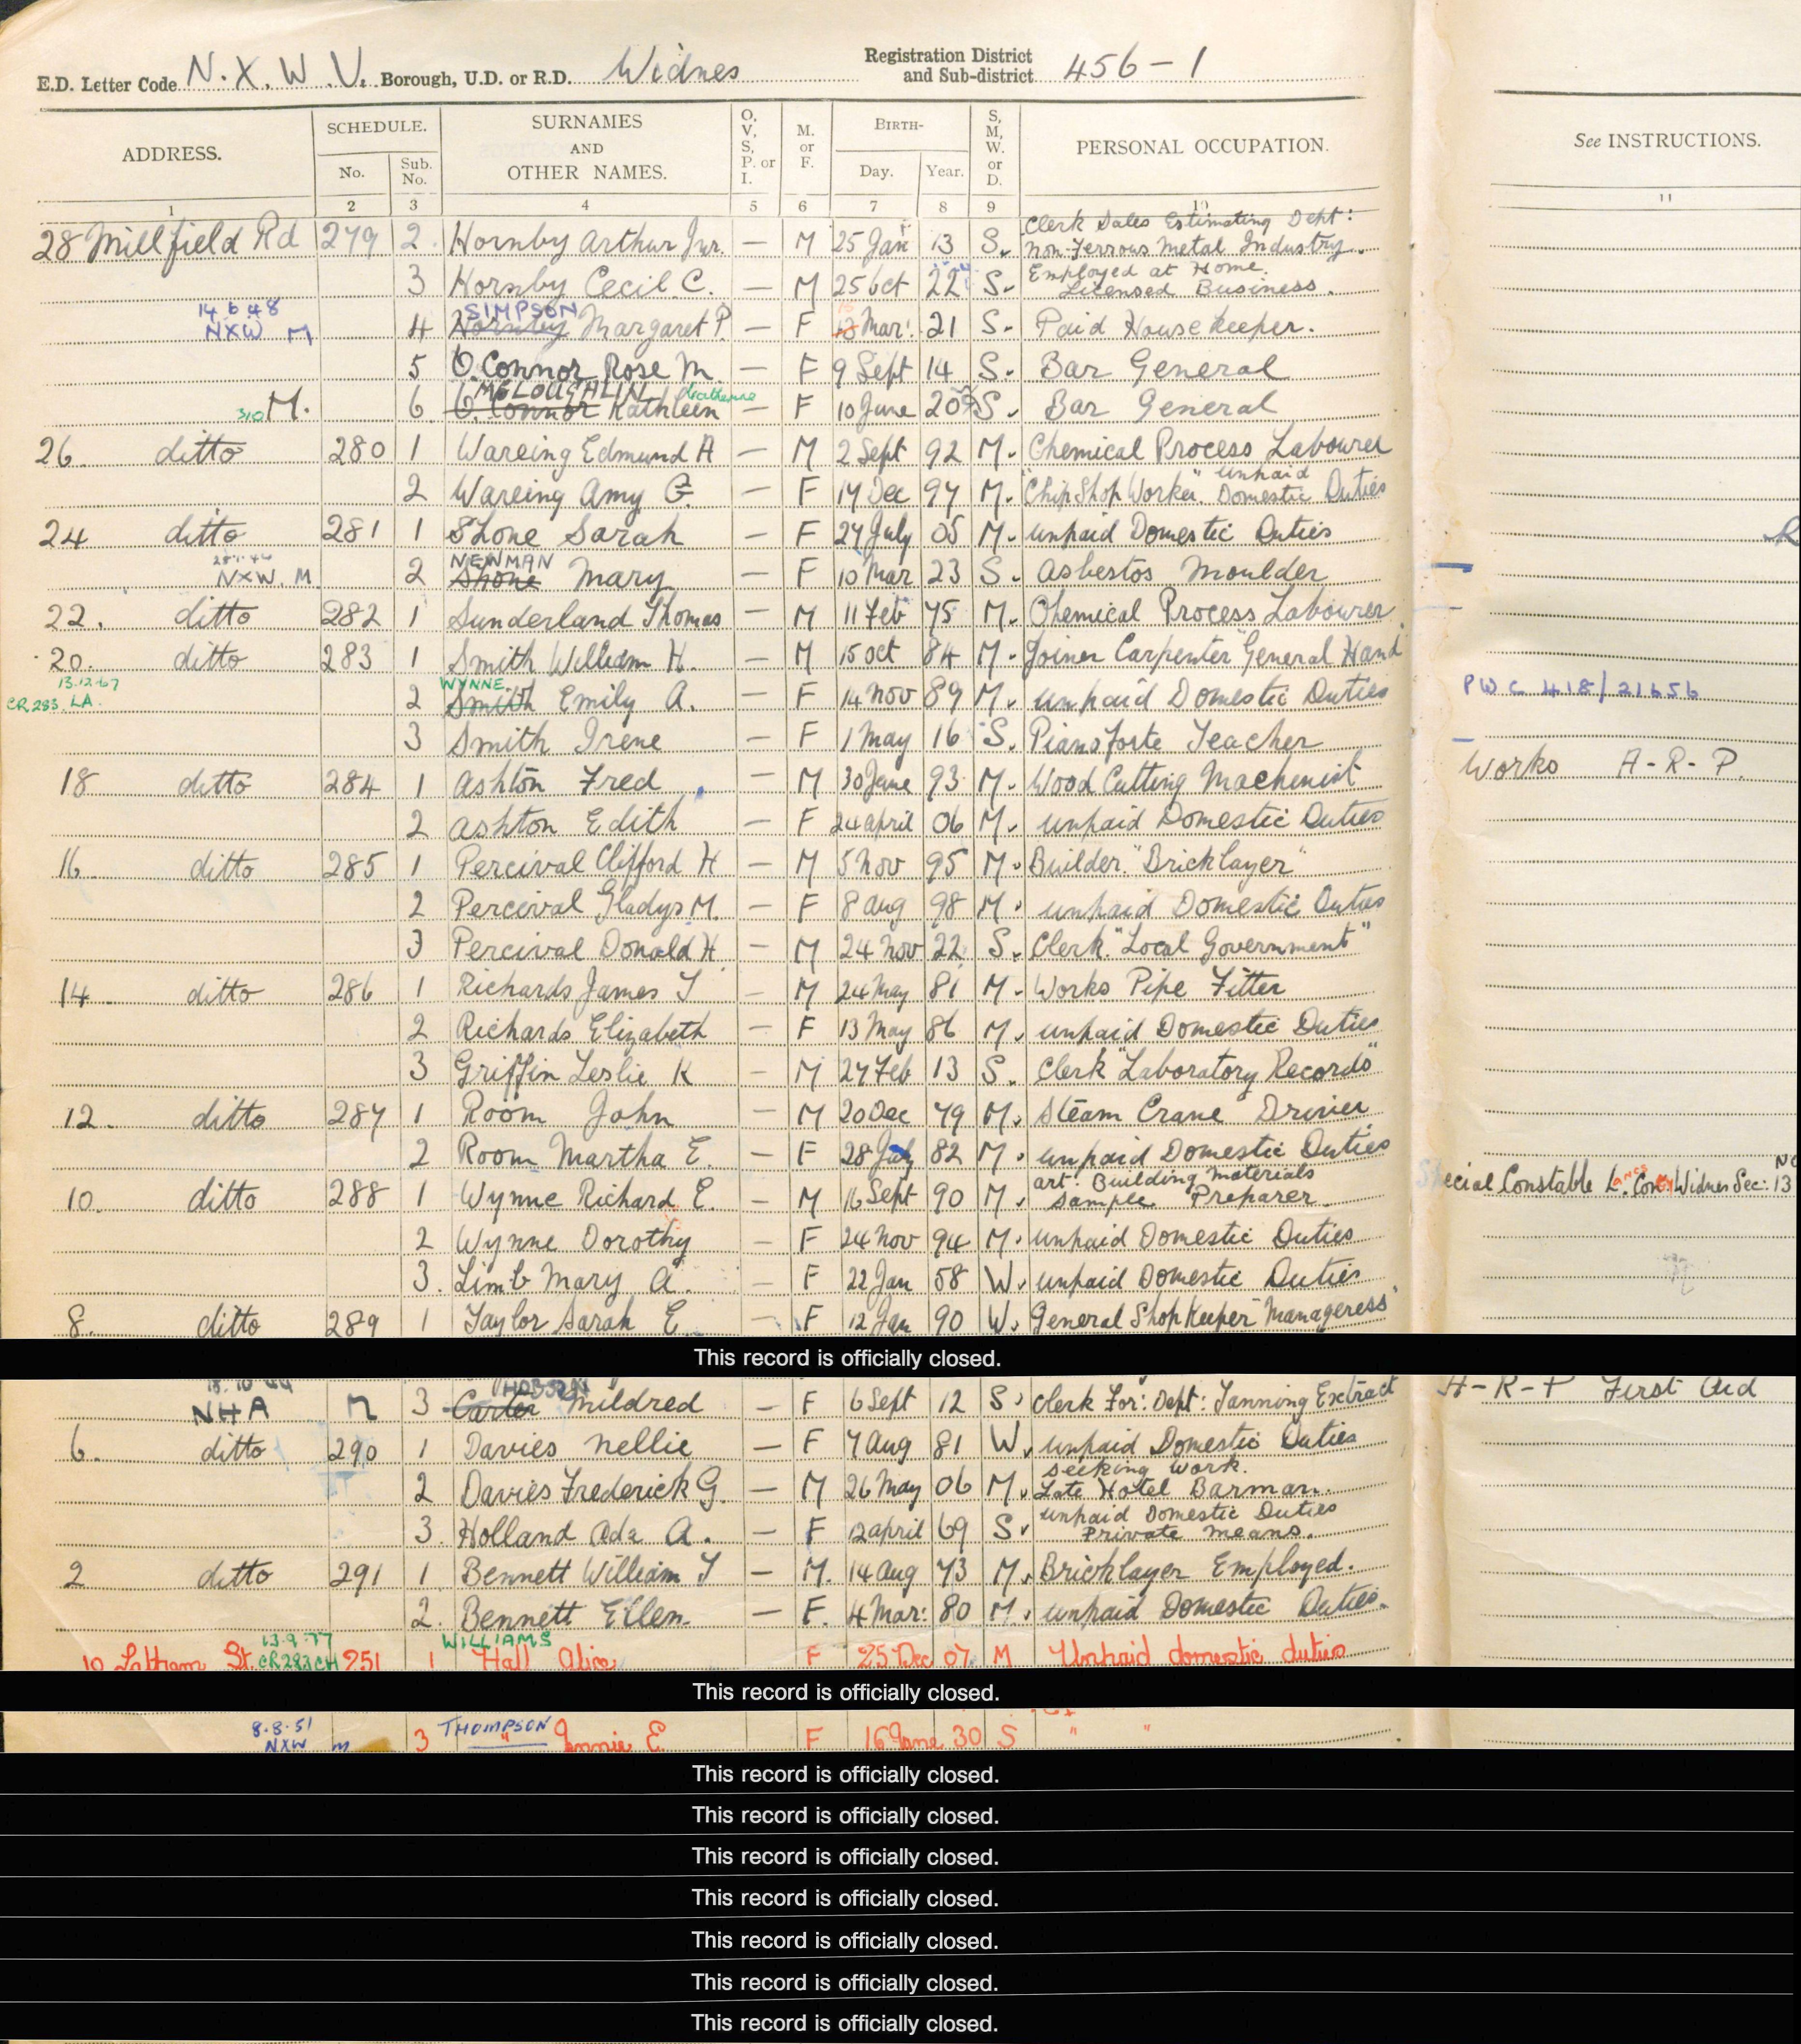 Registration District
and Sub-district 456-1
E.D. Letter Code N.X.W.V. Borough, U.D. or R.D. Widnes
ADDRESS. SCHEDULE. SURNAMES AND OTHER NAMES. O, V, S, P. or I. M. or F. BIRTH- S, M, W. or D. PERSONAL OCCUPATION. See INSTRUCTIONS.
No. Sub. No. Day. Year.
1 2 3 4 5 6 7 8 9 10 11
Clerk Sales Estimating Dept:
28 Millfield Rd 279 2. Hornby Arthur Jnr. — M 25 Jan 13 S. Non-Ferrous Metal Industry.
Employed at Home.
3 Hornby Cecil C. — M 25 Oct 22 S. Licensed Business.
14 6 48 SIMPSON
NXW M 4 Hornby Margaret P. — F Mar: 21 S. Paid Housekeeper.
5 O.Connor Rose M. — F 9 Sept 14 S. Bar General
McLOUGHLIN Catherine
310 M. 6 O.Connor Kathleen — F 10 June 20 S. Bar General
26. ditto 280 1 Wareing Edmund A — M 2 Sept 92 M. Chemical Process Labourer
unpaid
2 Wareing Amy G. — F 14 Dec 97 M. "Chip Shop Worker" Domestic Duties
24 ditto 281 1 Shone Sarah — F 27 July 05 M. unpaid Domestic Duties
NEWMAN
NXW. M 2 Shone Mary — F 10 Mar 23 S. Asbestos Moulder
22. ditto 282 1 Sunderland Thomas — M 11 Feb 75 M. Chemical Process Labourer
20. ditto 283 1 Smith William H. — M 15 Oct 84 M. Joiner Carpenter "General Hand
13.12.67 WYNNE
CR283. LA. 2 Smith Emily A. — F 14 Nov 89 M. unpaid Domestic Duties PWC 418/21656
3 Smith Irene — F 1 May 16 S. Pianoforte Teacher
18 ditto 284 1 Ashton Fred — M 30 June 93 M. Wood Cutting Machinist Works A-R-P.
2 Ashton Edith — F 24 April 06 M. unpaid Domestic Duties
16. ditto 285 1 Percival Clifford H — M 5 Nov 95 M. Builder. "Bricklayer"
2 Percival Gladys M. — F 8 Aug 98 M. unpaid Domestic Duties
3 Percival Donald H — M 24 Nov 22 S. Clerk. "Local Government"
14 ditto 286 1 Richards James T — M 24 May 81 M. Works Pipe Fitter
2 Richards Elizabeth — F 13 May 86 M. unpaid Domestic Duties
3 Griffin Leslie K — M 27 Feb 13 S. Clerk "Laboratory Records"
12. ditto 287 1 Room John — M 20 Dec 79 M. Steam Crane Driver
2 Room Martha E. — F 28 July 82 M. unpaid Domestic Duties
art: Building materials
10. ditto 288 1 Wynne Richard E. — M 16 Sept 90 M. Sample Preparer Special Constable Widnes Sec: 13
2 Wynne Dorothy — F 24 Nov 94 M. unpaid Domestic Duties
3. Limb Mary A. — F 22 Jan 58 W. unpaid Domestic Duties
8. ditto 289 1 Taylor Sarah E. — F 12 Jan 90 W. General Shop Keeper "Manageress"
This record is officially closed.
NHA M 3 Carter Mildred — F 6 Sept 12 S. Clerk For: Dept: Tanning Extract A-R-P First Aid
6. ditto 290 1 Davies Nellie — F 7 Aug 81 W. unpaid Domestic Duties
Seeking Work.
2 Davies Frederick G. — M 26 May 06 M. Late Hotel Barman.
unpaid Domestic Duties
3. Holland Ada A. — F 12 April 69 S. Private means.
2 ditto 291 1. Bennett William T — M. 14 Aug 73 M. Bricklayer Employed.
2. Bennett Ellen. — F. 4 Mar: 80 M. unpaid Domestic Duties.
13.9.77 WILLIAMS
10 Lathram St. CR283 CH 251 1 Hall Alice F 25 Dec 07 M Unpaid domestic duties
This record is officially closed.
8.8.51 THOMPSON
NXW m 3 " Annie E. F 16 June 30 S " "
This record is officially closed.
This record is officially closed.
This record is officially closed.
This record is officially closed.
This record is officially closed.
This record is officially closed.
This record is officially closed.